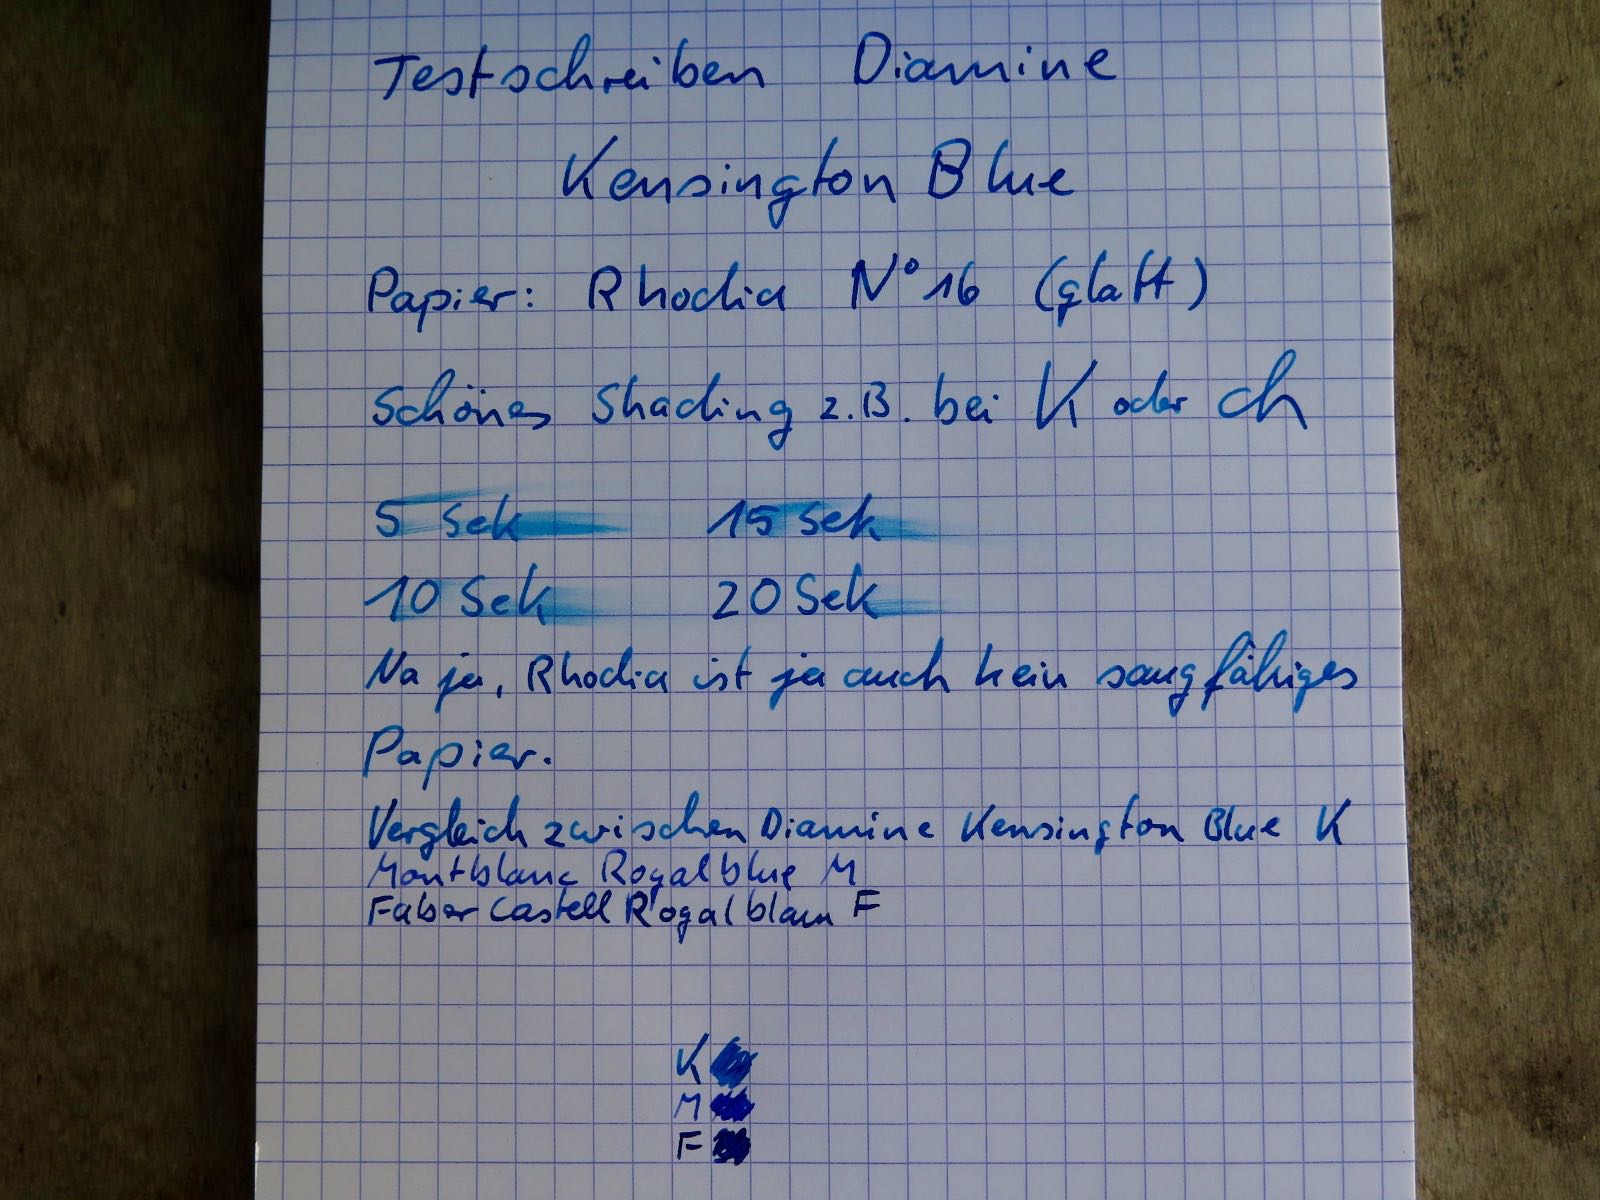 Testschreiben Diamine
Kensington Blue
Papier: Rhodia N° 16 (glatt)
Schönes Shading z.B. bei K oder ch
5 Sek 15 Sek
10 Sek 20 Sek
Na ja, Rhodia ist ja auch kein saugfähiges
Papier.
Vergleich zwischen Diamine Kensington Blue K
Montblanc Royalblue M
Faber Castell Royalblau F
K
M
F